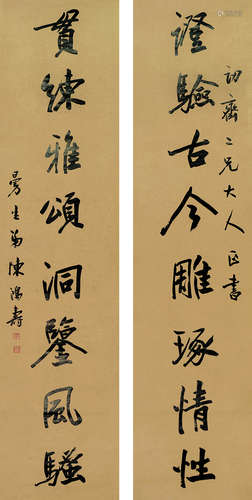 證驗古今雕琢情性
訒齋二兄大人正書
貫練雅頌洞鑒風騷
曼生弟陳鴻壽